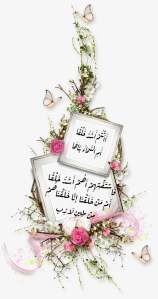 ءَأَنتُمْ أَشَدُّ خَلْقًا
أَمِ السَّمَاءُ بَنَاهَا
فَاسْتَفْتِهِمْ أَهُمْ أَشَدُّ خَلْقًا
أَم مَّنْ خَلَقْنَا إِنَّا خَلَقْنَاهُم
مِّن طِينٍ لَّازِبٍ